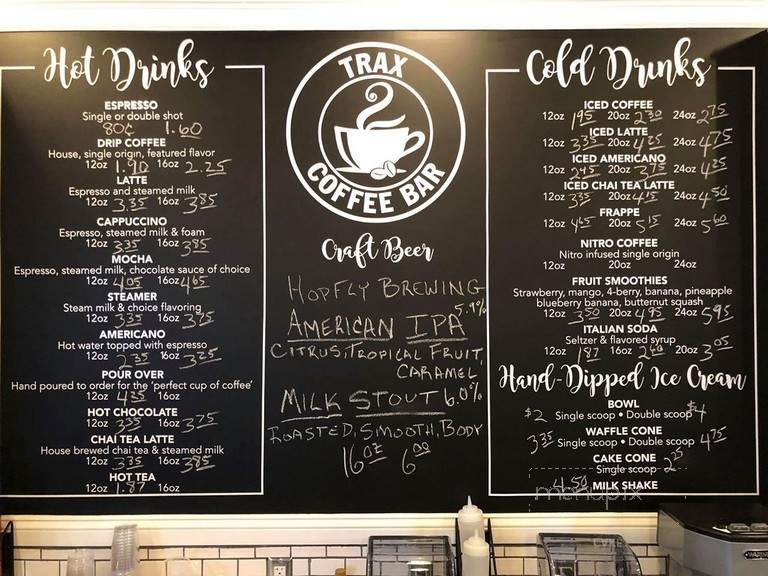 Hot Drinks
ESPRESSO
Single or double shot
80¢ 1.60
DRIP COFFEE
House, single origin, featured flavor
12oz 1.90 16oz 2.25
LATTE
Espresso and steamed milk
12oz 3.35 16oz 3.85
CAPPUCCINO
Espresso, steamed milk & foam
12oz 3.35 16oz 3.85
MOCHA
Espresso, steamed milk, chocolate sauce of choice
12oz 4.05 16oz 4.65
STEAMER
Steam milk & choice flavoring
12oz 3.35 16oz
AMERICANO
Hot water topped with espresso
12oz 2.35 16oz 3.25
POUR OVER
Hand poured to order for the 'perfect cup of coffee'
12oz 4.35 16oz
HOT CHOCOLATE
12oz 3.35 16oz 3.75
CHAI TEA LATTE
House brewed chai tea & steamed milk
12oz 3.35 16oz 3.85
HOT TEA
12oz 1.87 16oz
TRAX
COFFEE BAR
Craft Beer
HOPFLY BREWING
5.9%
AMERICAN IPA
CITRUS, TROPICAL FRUIT,
CARAMEL
MILK STOUT 6.0%
ROASTED, SMOOTH, BODY
16oz 6.00
Cold Drinks
ICED COFFEE
12oz 1.95 20oz 2.30 24oz 2.75
ICED LATTE
12oz 3.35 20oz 4.25 24oz 4.75
ICED AMERICANO
12oz 2.45 20oz 3.75 24oz 4.25
ICED CHAI TEA LATTE
12oz 3.35 20oz 4.15 24oz 4.50
FRAPPE
12oz 4.65 20oz 5.15 24oz 5.60
NITRO COFFEE
Nitro infused single origin
12oz 20oz 24oz
FRUIT SMOOTHIES
Strawberry, mango, 4-berry, banana, pineapple
blueberry banana, butternut squash
12oz 3.50 20oz 4.95 24oz 5.95
ITALIAN SODA
Seltzer & flavored syrup
12oz 1.87 16oz 2.60 20oz 3.05
Hand-Dipped Ice Cream
BOWL
$2 Single scoop • Double scoop $4
WAFFLE CONE
3.35 Single scoop • Double scoop 4.75
CAKE CONE
Single scoop 2.25
4.50 MILK SHAKE
menupix